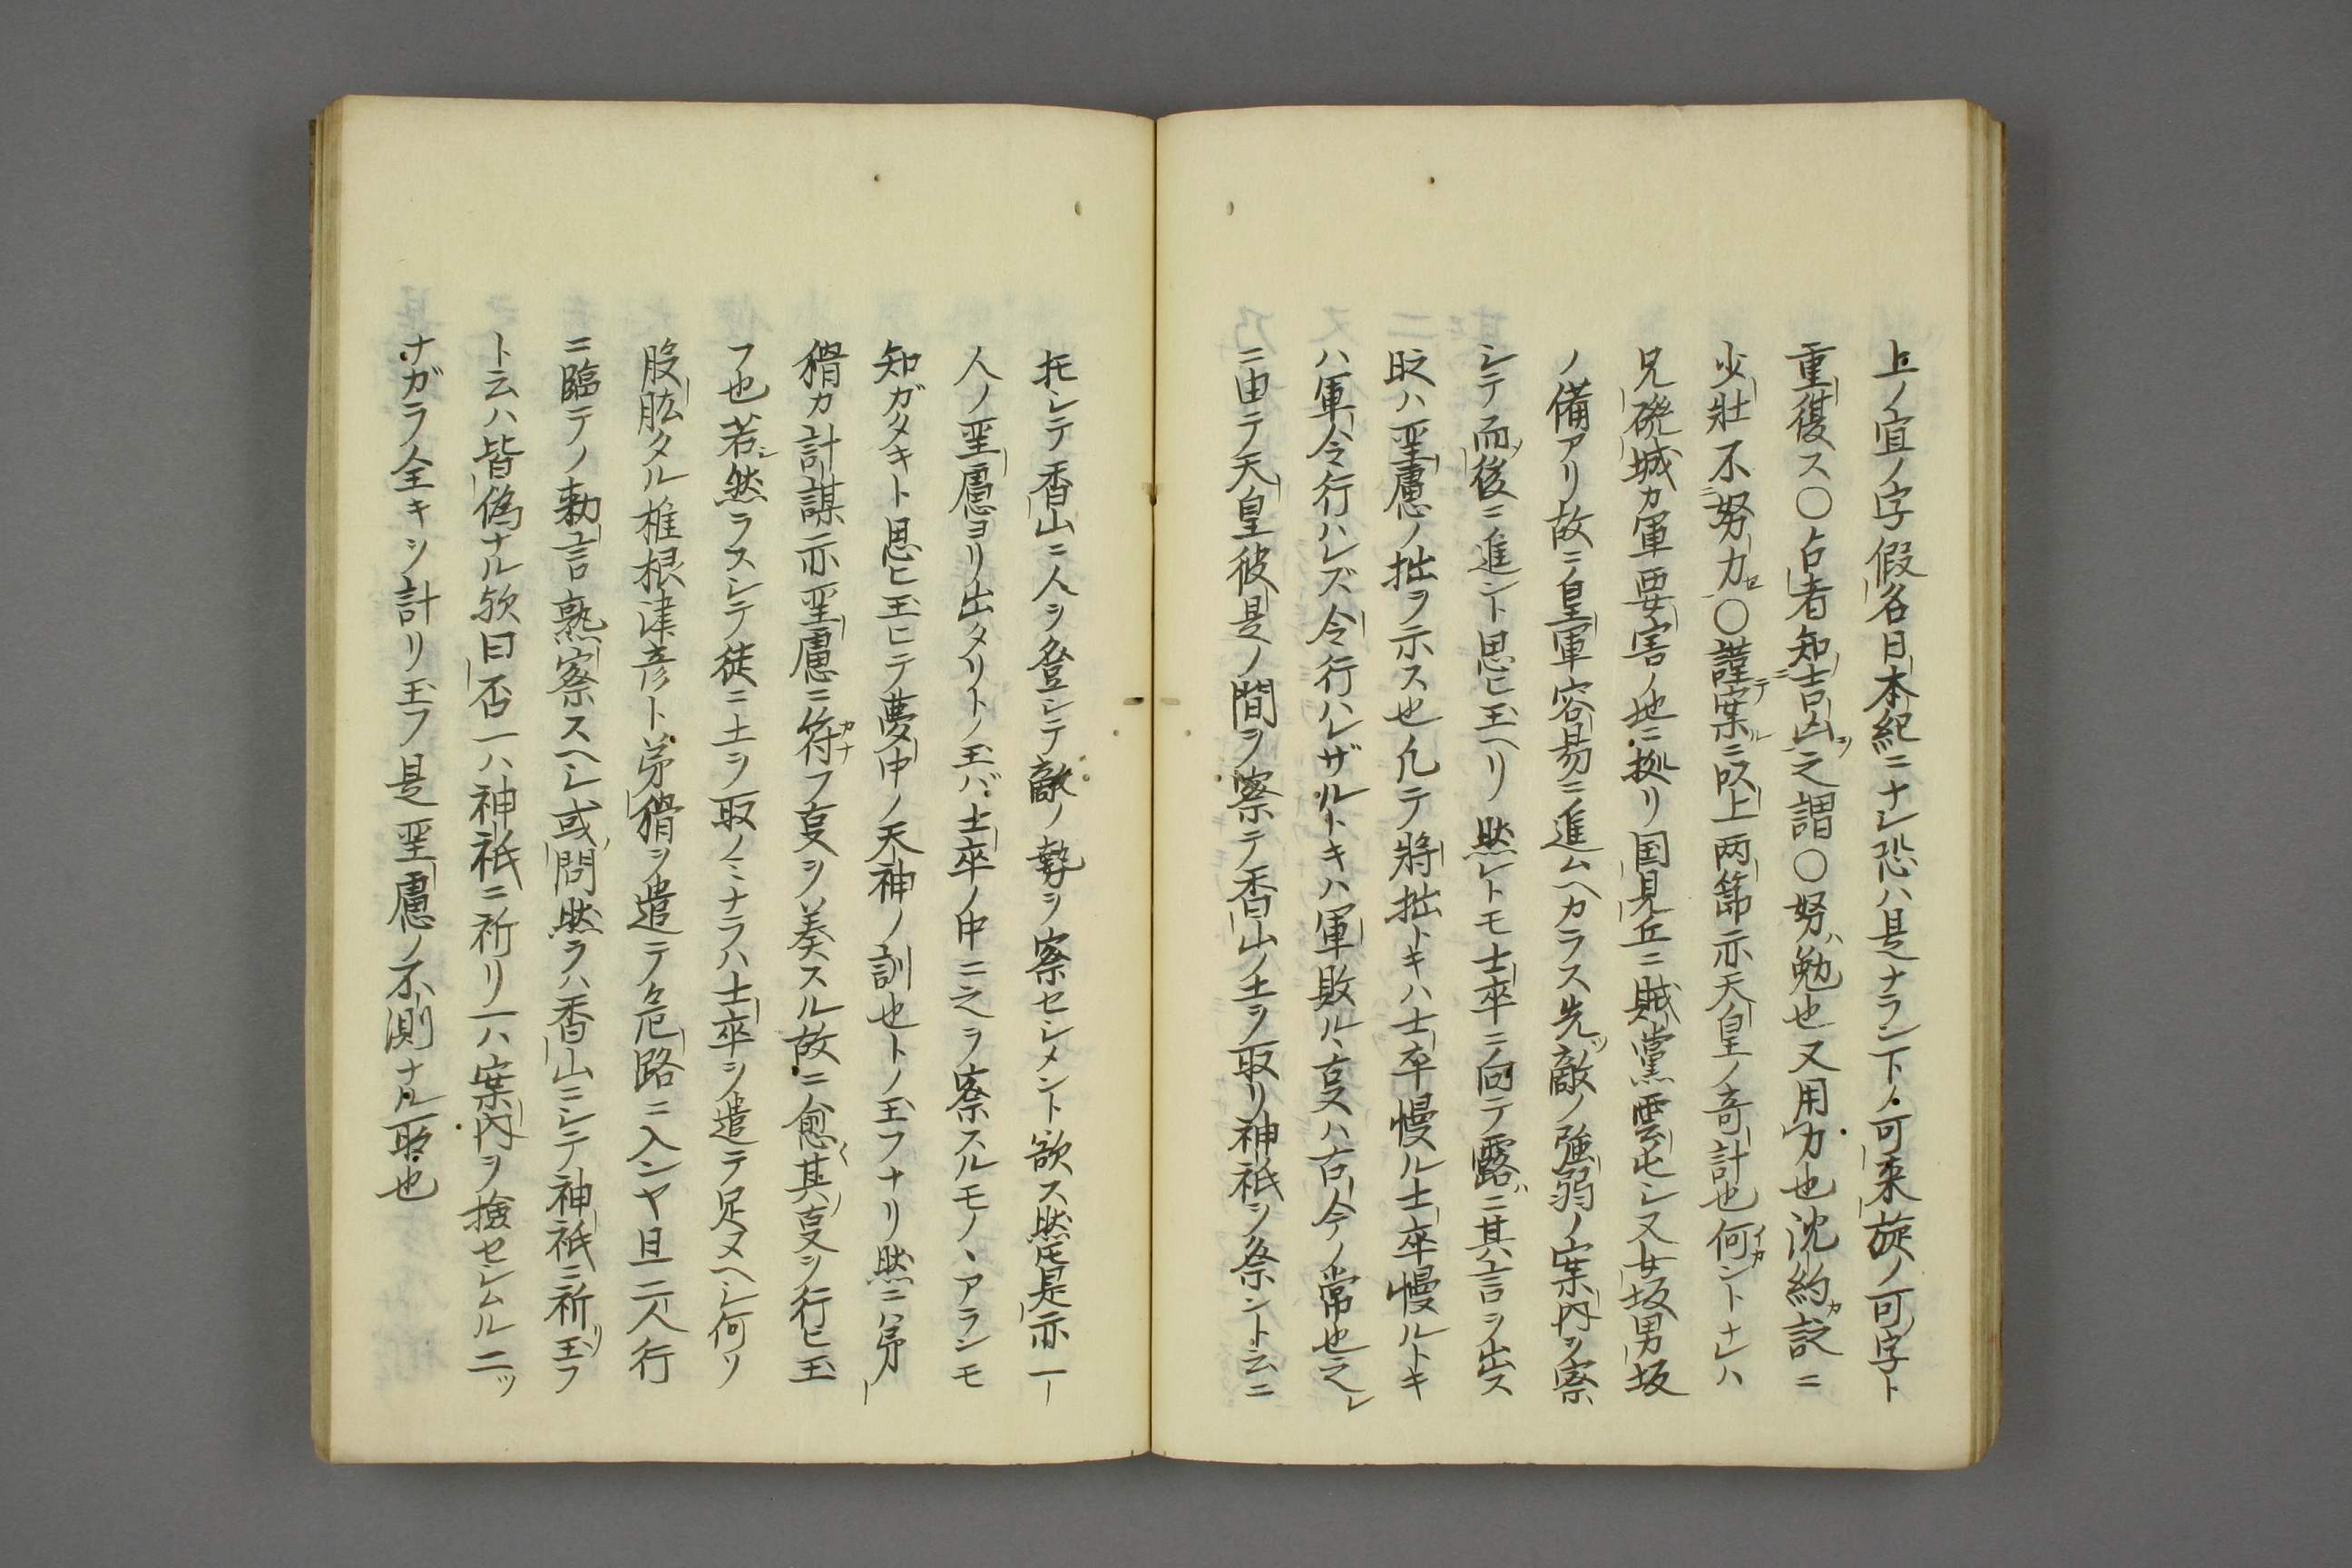 上ノ宜ノ字假名日本紀ニナシ恐ハ是ナラン下ノ可来旋ノ可字ト
重復ス〇占者知吉凶之謂〇努ハ勉也又用力也沈約カ説ニ
少壯不努力〇謹テ案ルニ以上兩節亦天皇ノ奇計也何ントナレハ
兄磯城カ軍要害ノ地ニ拠リ国見丘ニ賊黨雲屯シ又女坂男坂
ノ備アリ故ニ皇軍容易ニ進ムヘカラス先ツ敵ノ強弱ノ案内ヲ察
シテ而後ニ進ント思ヒ玉ヘリ然レトモ士卒ニ向テ露ニ其言ヲ出ス
時ハ聖慮ノ拙ヲ示ス也凡テ將拙トキハ士卒慢ル士卒慢ルトキ
ハ軍令行ハレズ令行ハレザルトキハ軍敗ルヽ叓ハ古今ノ常也之レ
ニ由テ天皇彼是ノ間ヲ察テ香山ノ土ヲ取リ神祇ヲ祭ント云ニ
托シテ香山ニ人ヲ登シテ敵ノ勢ヲ察セシメント欲ス然圧是亦一
人ノ聖慮ヨリ出タリトノ玉バ士卒ノ中ニ之ヲ察スルモノヽアランモ
知ガタキト思ヒ玉ヒテ夢中ノ天神ノ訓也トノ玉フナリ然ニハ弟
猾カ計謀亦聖慮ニ符フ叓ヲ奏スル故ニ愈其叓ヲ行ヒ玉
フ也若シ然ラスシテ徒ニ土ヲ取ノミナラハ士卒ヲ遣テ足ヌヘシ何ソ
股肱タル椎根津彦ト弟猾ヲ遣テ危路ニ入ンヤ且二人行
ニ臨テノ勅言熟察スヘシ或問然ラハ香山ニシテ神祇ニ祈リ玉フ
ト云ハ皆偽ナル欤曰否一ハ神祇ニ祈リ一ハ案内ヲ撿セシムル二ツ
ナガラ全キヲ計リ玉フ是聖慮ノ不測ナル所也